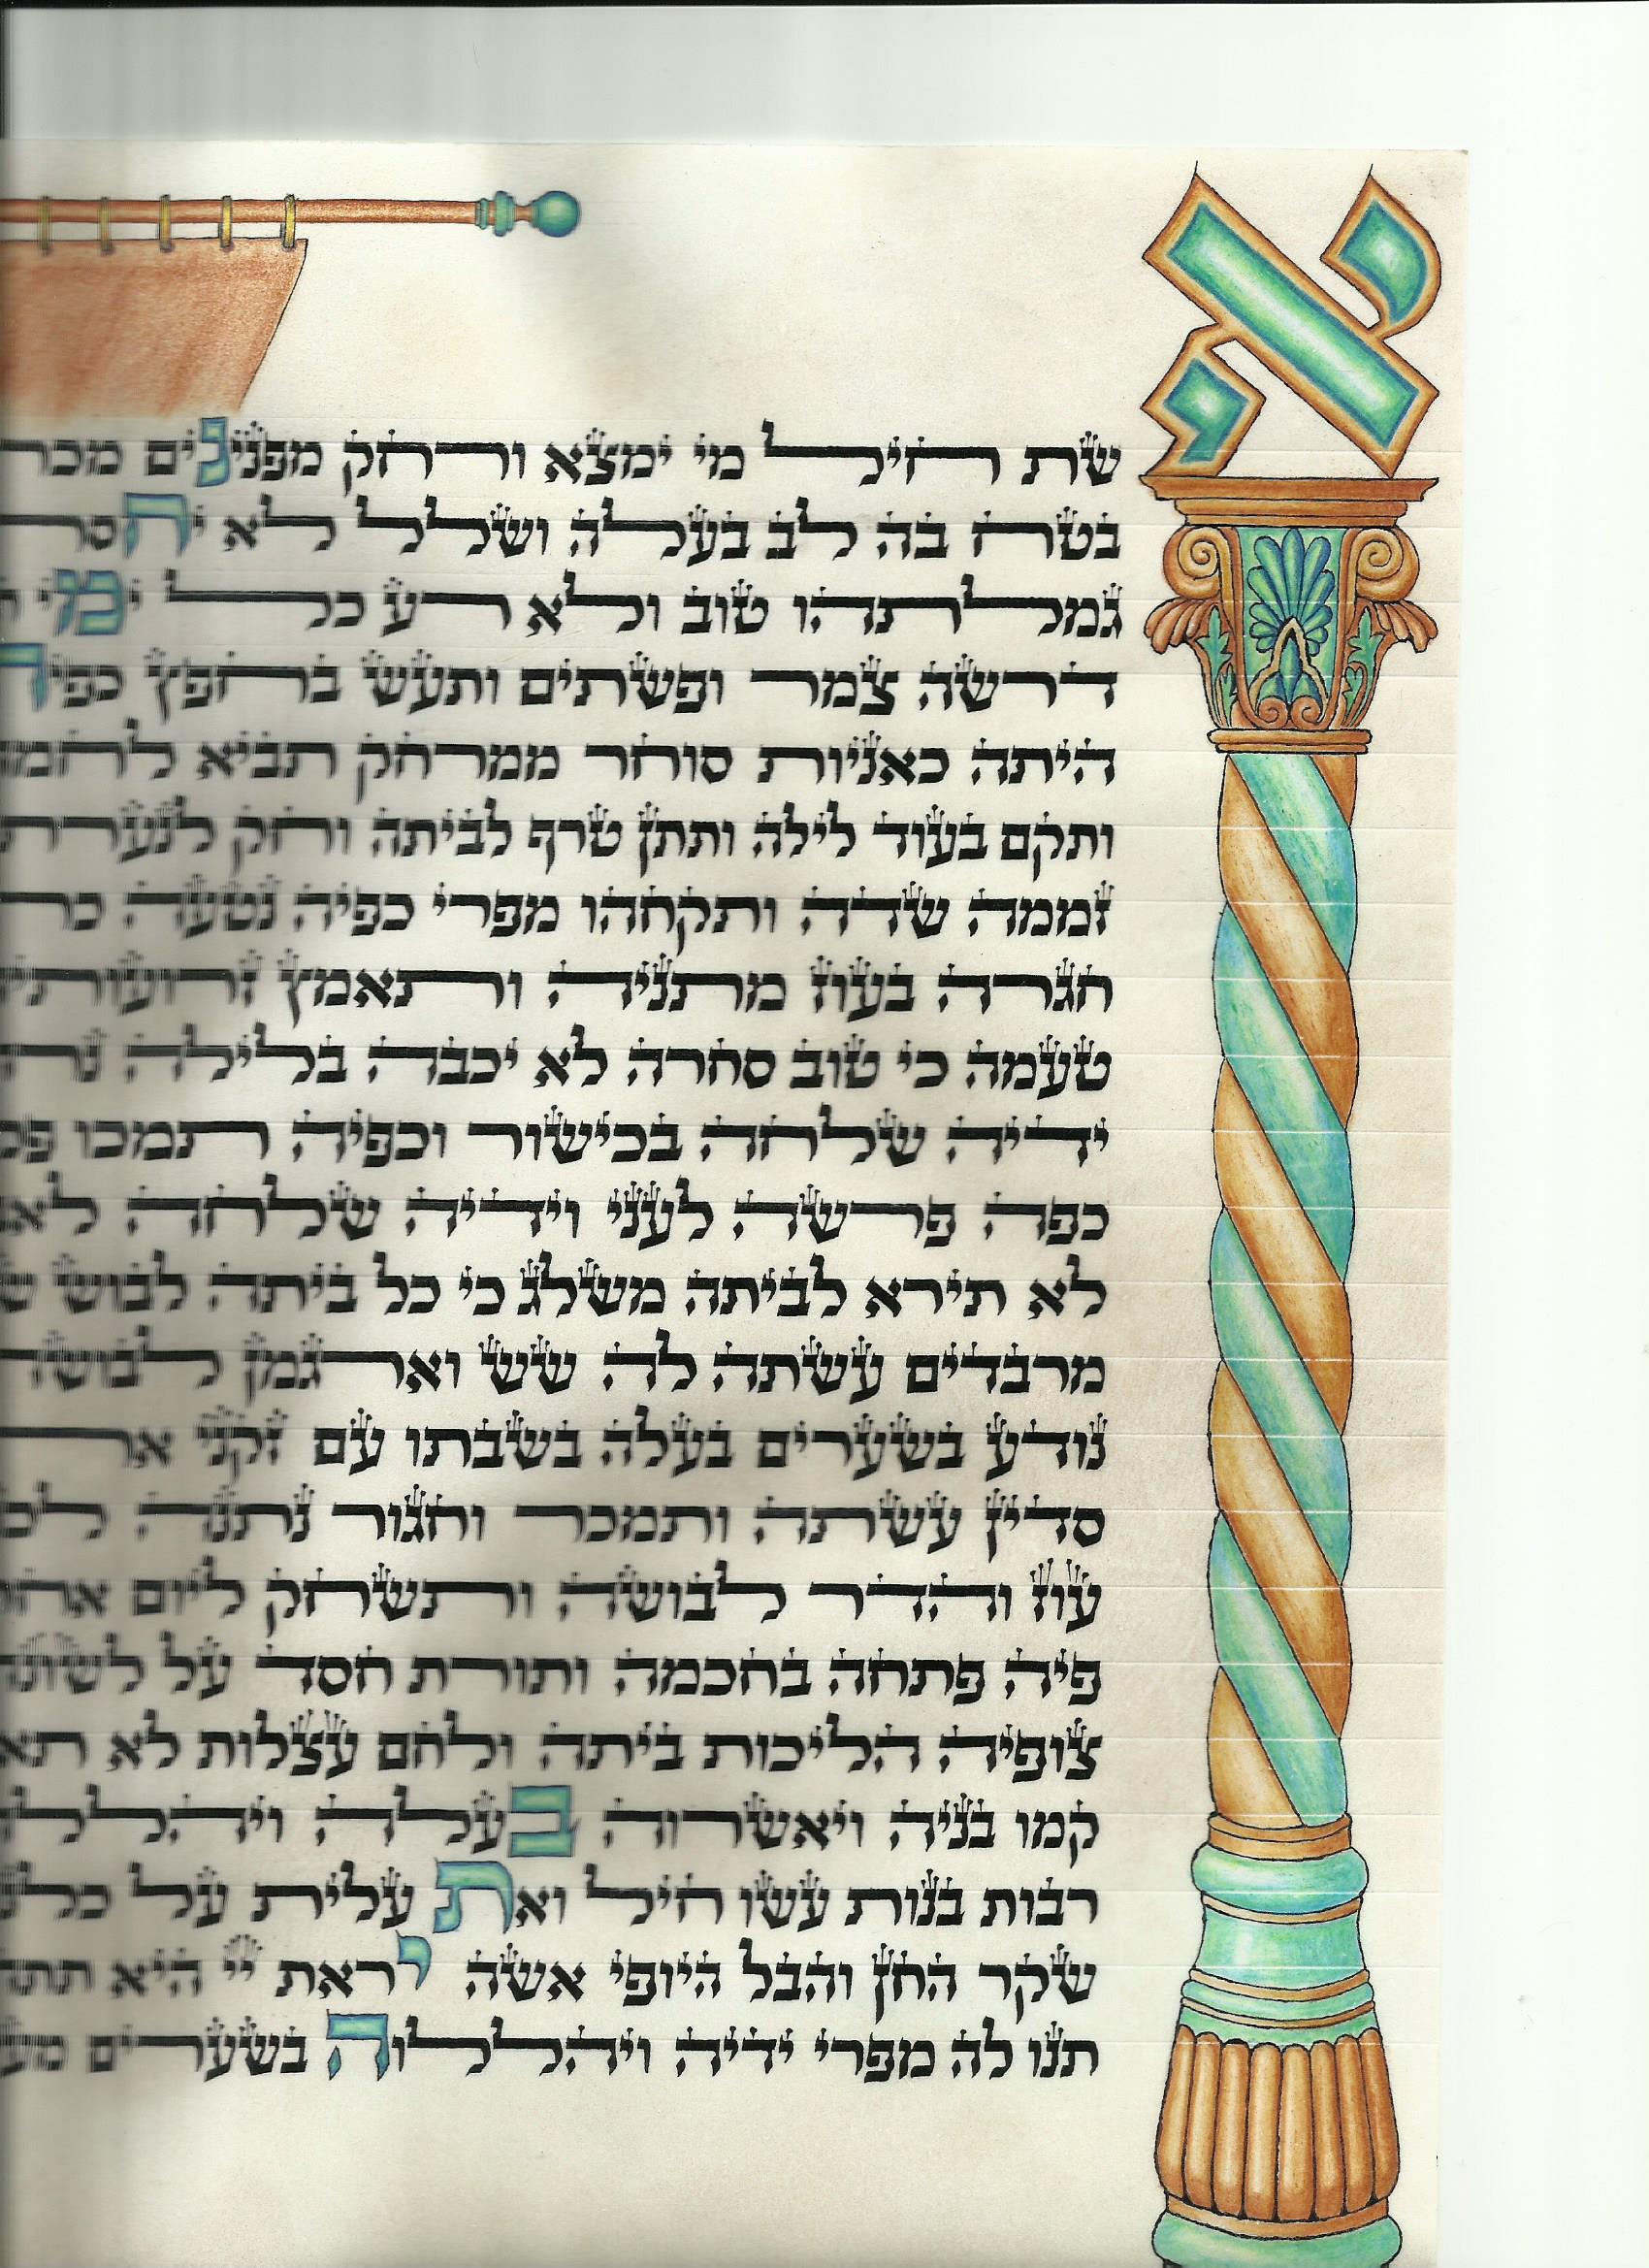 א
שת חיל מי ימצא ורחק מפנינים מכר
בטח בה לב בעלה ושלל לא יחסר
גמלתהו טוב ולא רע כל ימי
דרשה צמר ופשתים ותעש בחפץ כפיה
היתה כאניות סוחר ממרחק תביא לחמה
ותקם בעוד לילה ותתן טרף לביתה וחק לנערת
זממה שדה ותקחהו מפרי כפיה נטעה כר
חגרה בעוז מתניה ותאמץ זרועותי
טעמה כי טוב סחרה לא יכבה בלילה נרה
ידיה שלחה בכישור וכפיה תמכו פל
כפה פרשה לעני וידיה שלחה לא
לא תירא לביתה משלג כי כל ביתה לבוש ש
מרבדים עשתה לה שש וארגמן לבושה
נודע בשערים בעלה בשבתו עם זקני אר
סדין עשתה ותמכר וחגור נתנה לכ
עוז והדר לבושה ותשחק ליום אחר
פיה פתחה בחכמה ותורת חסד על לשונה
צופיה הליכות ביתה ולחם עצלות לא תא
קמו בניה ויאשרוה בעלה ויהללה
רבות בנות עשו חיל ואת עלית על כלנ
שקר החן והבל היופי אשה יראת יי היא תתה
תנו לה מפרי ידיה ויהללוה בשערים מע